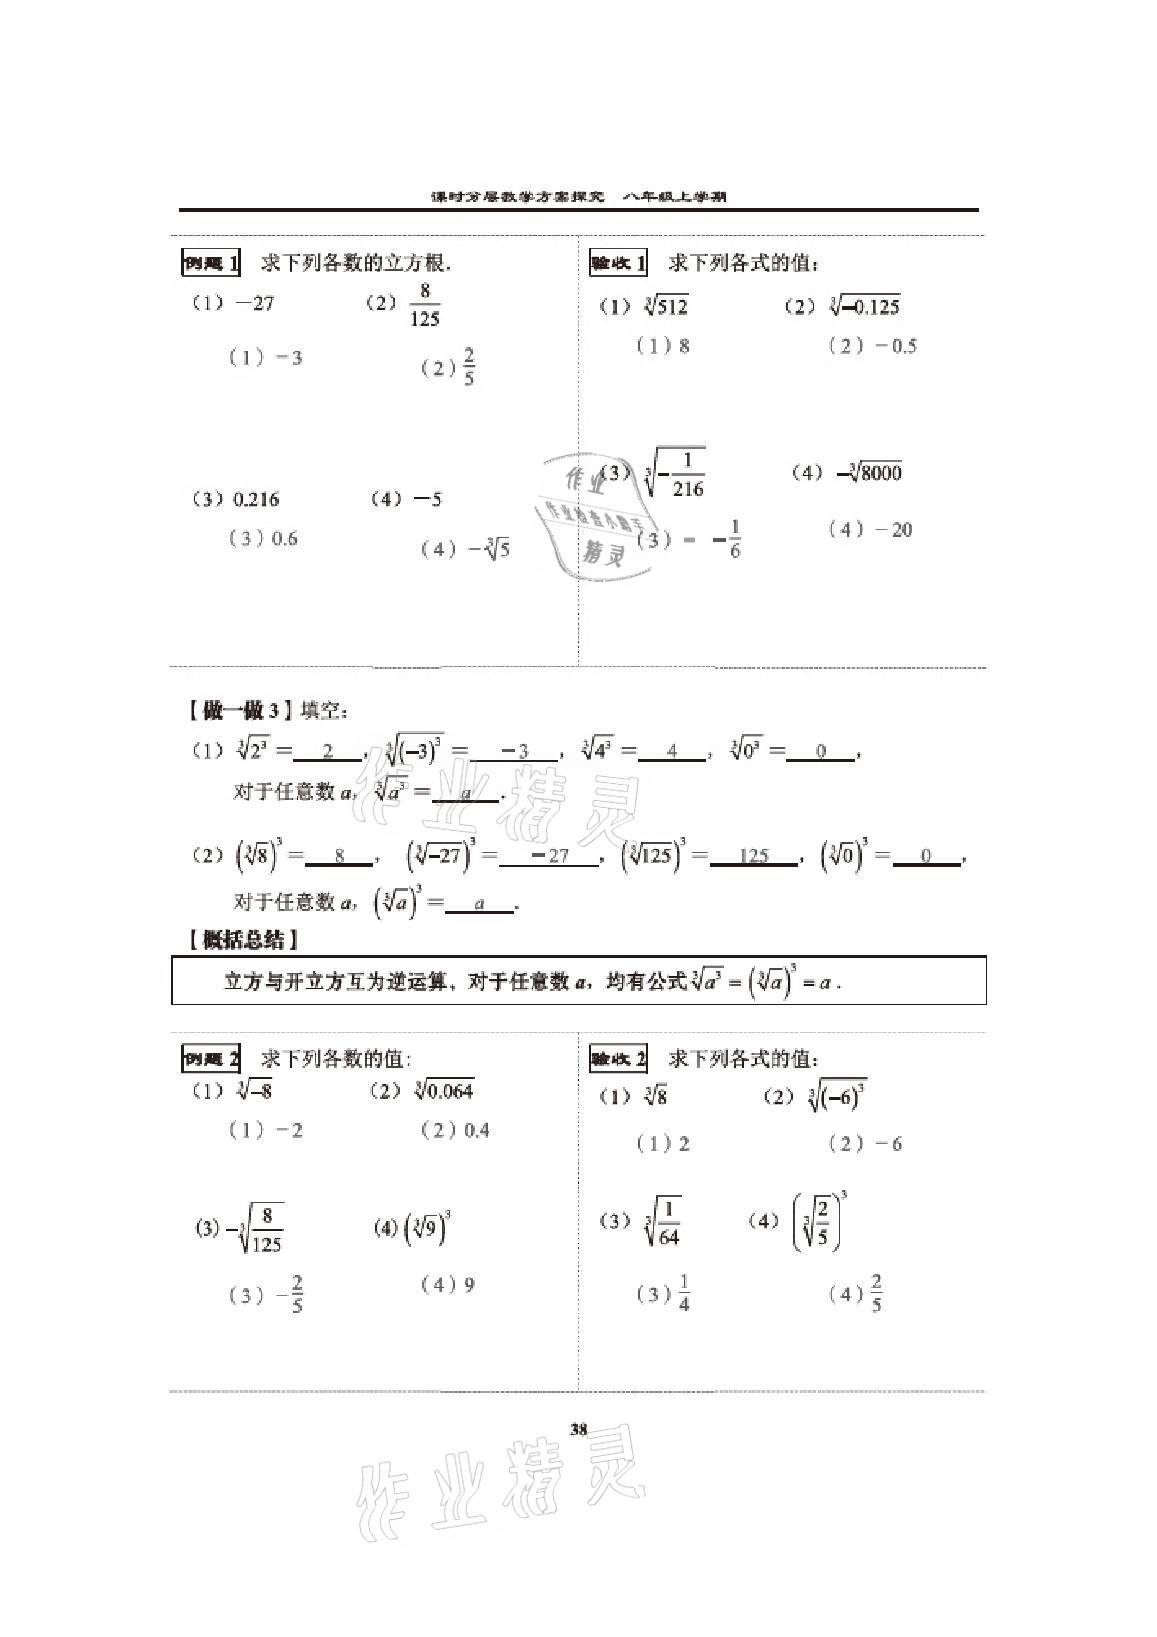 课时分层数学方案探究 八年级上学期
例题1 求下列各数的立方根.
(1) −27 (2) 8/125
(1) −3 (2) 2/5
(3) 0.216 (4) −5
(3) 0.6 (4) −∛5
验收1 求下列各式的值:
(1) ∛512 (2) ∛−0.125
(1) 8 (2) −0.5
(3) ∛(−1/216) (4) −∛8000
(3) − −1/6 (4) −20
作业
作业检查小助手
精灵
【做一做3】填空:
(1) ∛2³ = 2 , ∛(−3)³ = −3 , ∛4³ = 4 , ∛0³ = 0 ,
对于任意数 a, ∛a³ = a .
(2) (∛8)³ = 8 , (∛−27)³ = −27 , (∛125)³ = 125 , (∛0)³ = 0 ,
对于任意数 a, (∛a)³ = a .
作业精灵
【概括总结】
立方与开立方互为逆运算, 对于任意数 a, 均有公式∛a³ = (∛a)³ = a .
例题2 求下列各数的值:
(1) ∛−8 (2) ∛0.064
(1) −2 (2) 0.4
(3) −∛(8/125) (4) (∛9)³
(3) −2/5 (4) 9
验收2 求下列各式的值:
(1) ∛8 (2) ∛(−6)³
(1) 2 (2) −6
(3) ∛(1/64) (4) (∛(2/5))³
(3) 1/4 (4) 2/5
38
作业精灵